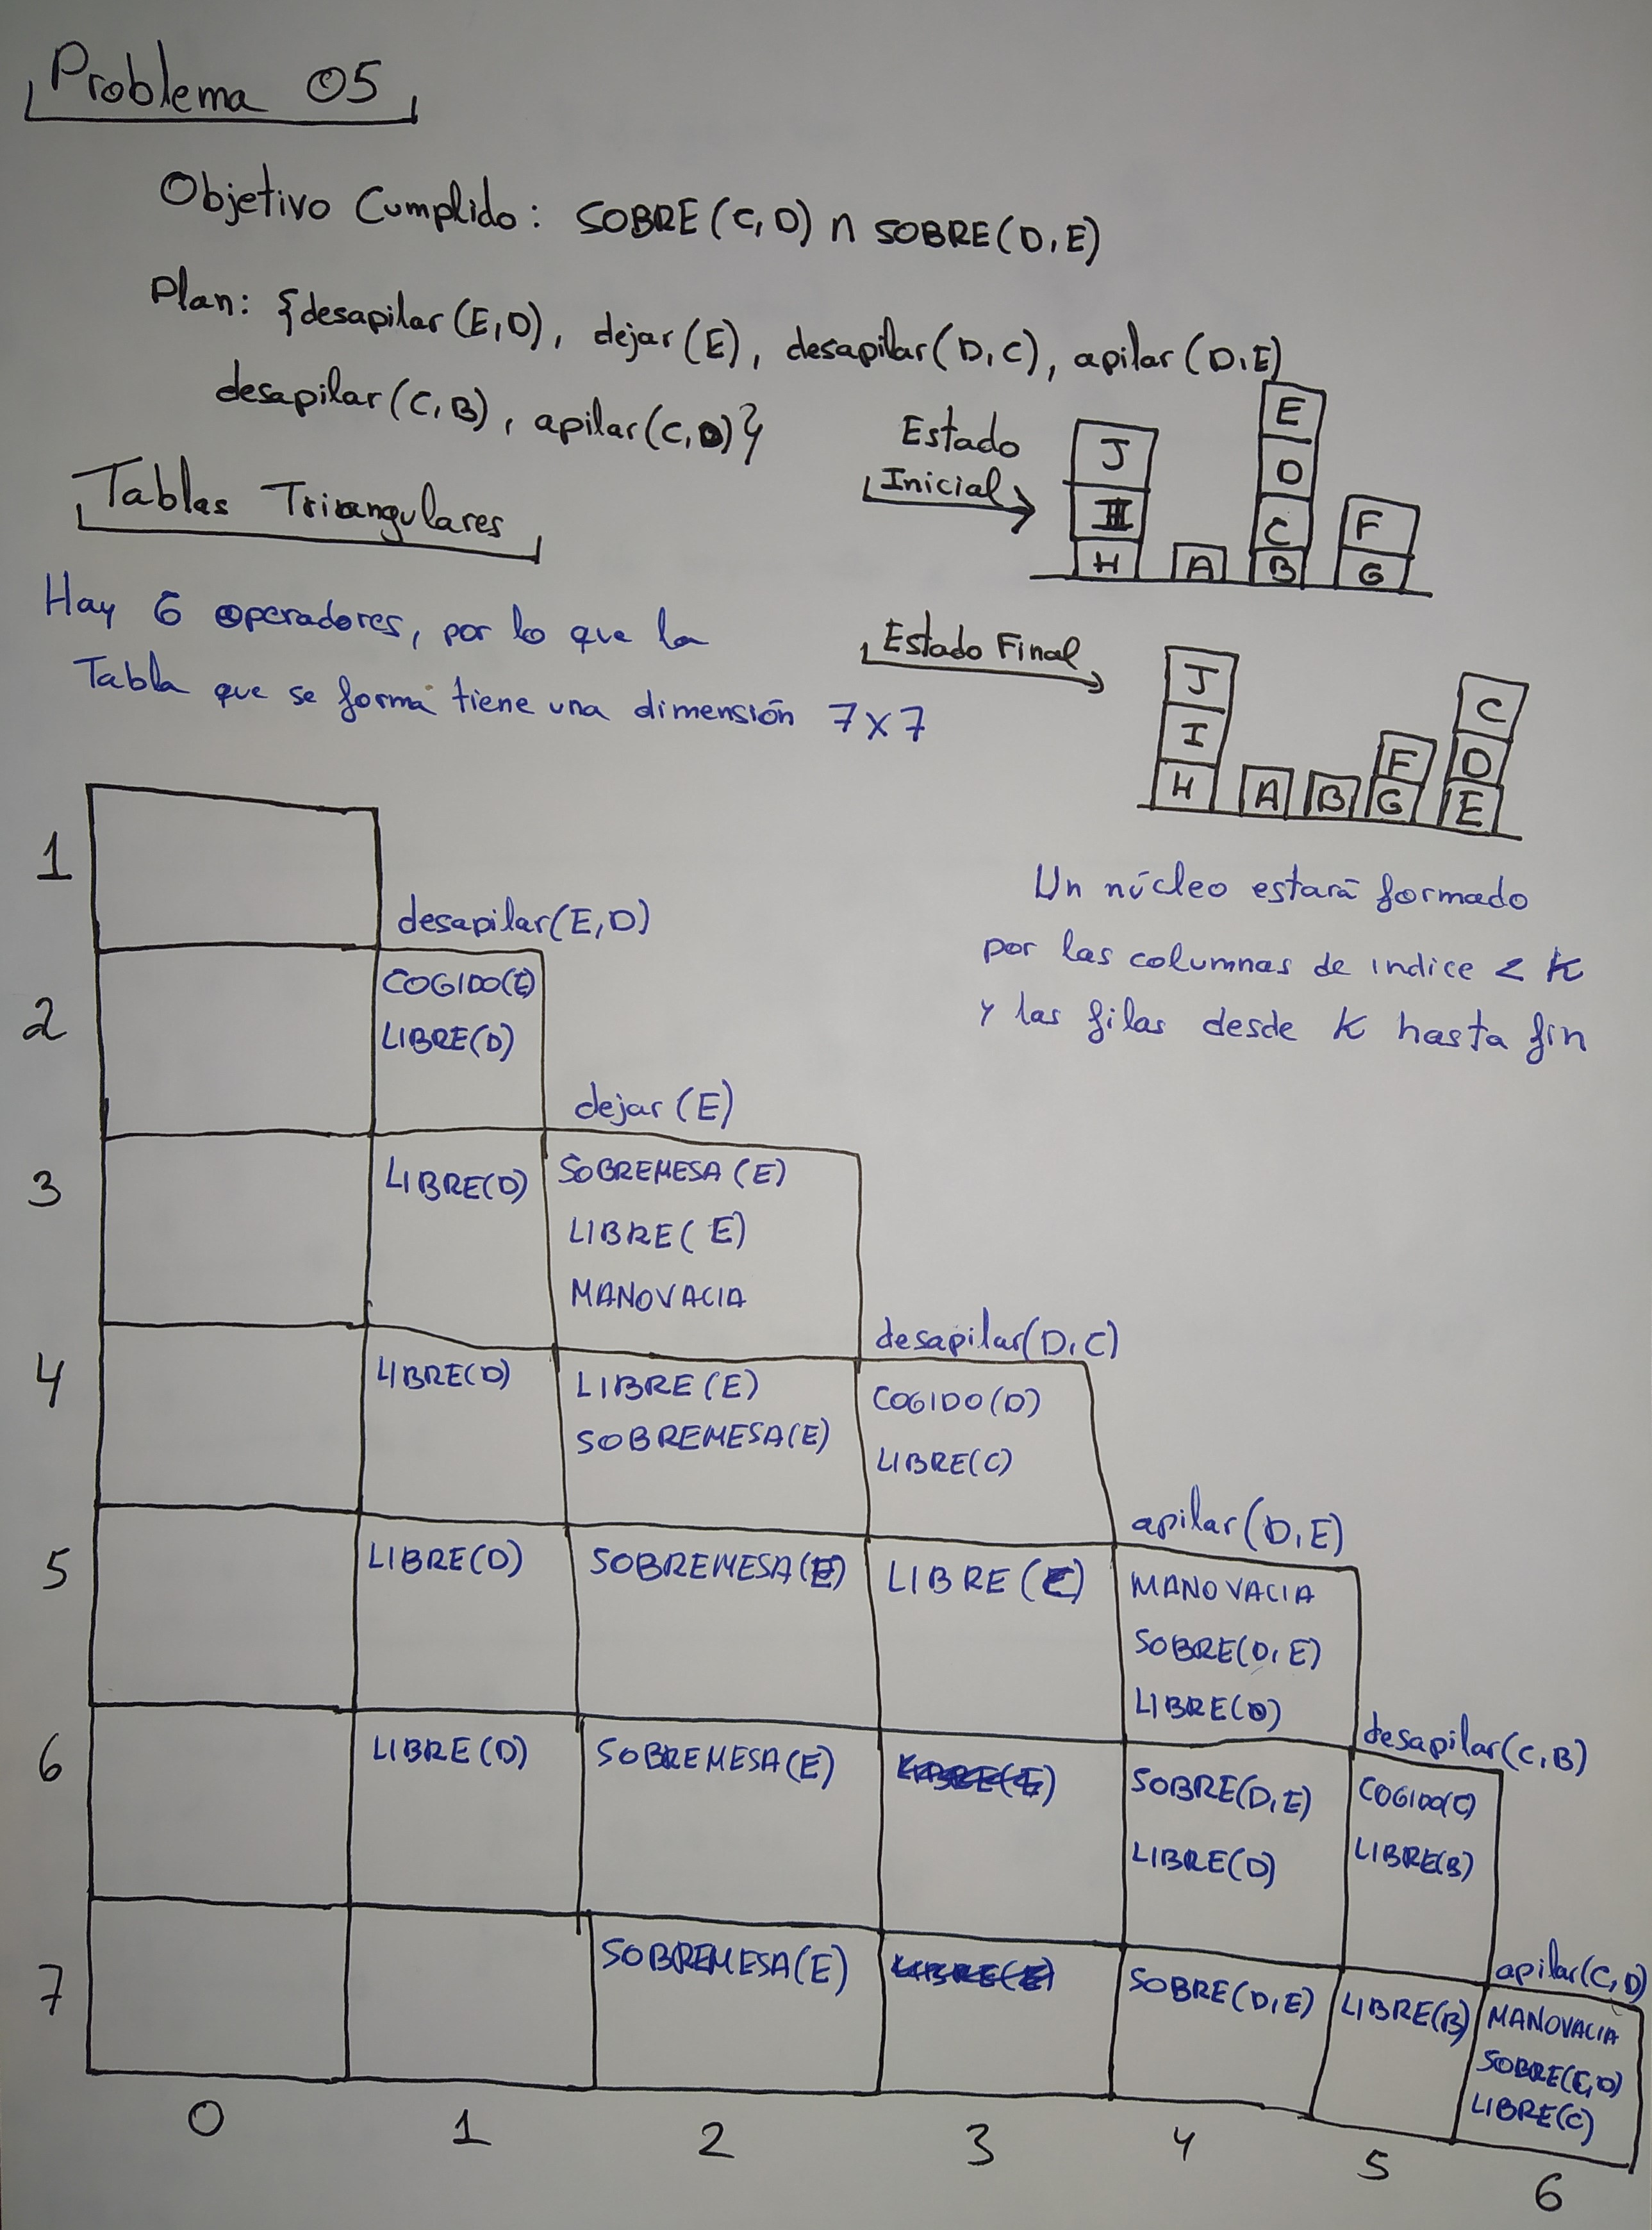 Problema 05
Objetivo Cumplido: SOBRE(C,D) ∩ SOBRE(D,E)
Plan: {desapilar(E,D), dejar(E), desapilar(D,C), apilar(D,E)
desapilar(C,B), apilar(C,D)}
Estado
Inicial
J
E
D
C
F
H
A
B
G
Tablas Triangulares
Hay 6 operadores, por lo que la
Tabla que se forma tiene una dimensión 7x7
Estado Final
J
I
H
A
B
F
G
C
D
E
Un núcleo estará formado
por las columnas de indice < K
y las filas desde K hasta fin
1
desapilar(E,D)
2
COGIDO(E)
LIBRE(D)
dejar(E)
3
LIBRE(D)
SOBREMESA(E)
LIBRE(E)
MANOVACIA
desapilar(D,C)
4
LIBRE(D)
LIBRE(E)
SOBREMESA(E)
COGIDO(D)
LIBRE(C)
apilar(D,E)
5
LIBRE(D)
SOBREMESA(E)
LIBRE(C)
MANOVACIA
SOBRE(D,E)
LIBRE(D)
desapilar(C,B)
6
LIBRE(D)
SOBREMESA(E)
SOBRE(D,E)
LIBRE(D)
COGIDO(C)
LIBRE(B)
apilar(C,D)
7
SOBREMESA(E)
SOBRE(D,E)
LIBRE(B)
MANOVACIA
SOBRE(C,D)
LIBRE(C)
0
1
2
3
4
5
6